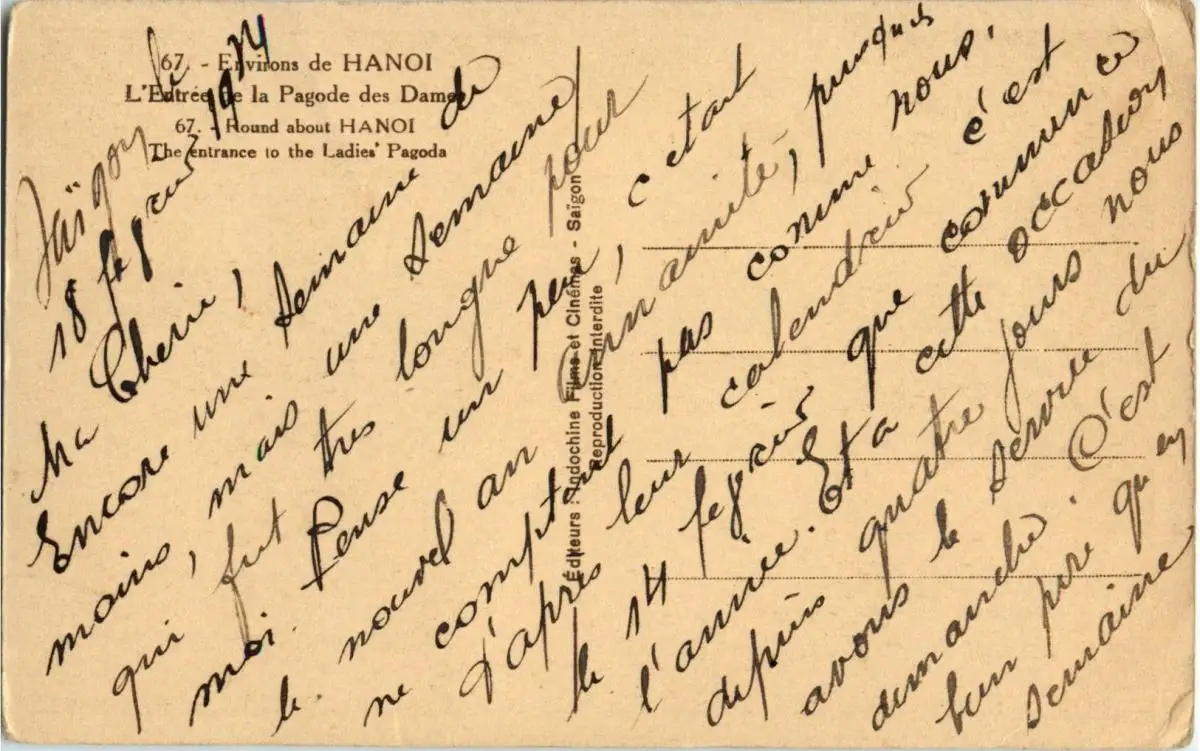 67. - Environs de HANOI
L'Entrée de la Pagode des Dames
67. - Round about HANOI
The entrance to the Ladies' Pagoda
Éditeurs : Indochine Films et Cinémas - Saïgon
Reproduction Interdite
Saïgon le
18 fevrier 19
Ma Cherie,
Encore une semaine de
moins, mais une semaine
qui fut très longue pour
moi. Pense un peu, c etant
le nouvel an Annamite, puisque
ne comptant pas comme nous,
d'après leur calendrier c'est
le 14 fevrier que commence
l'année. Et a cette occasion
depuis quatre jours nous
avons le service du
dimanche. C'est
bien pire qu en
semaine